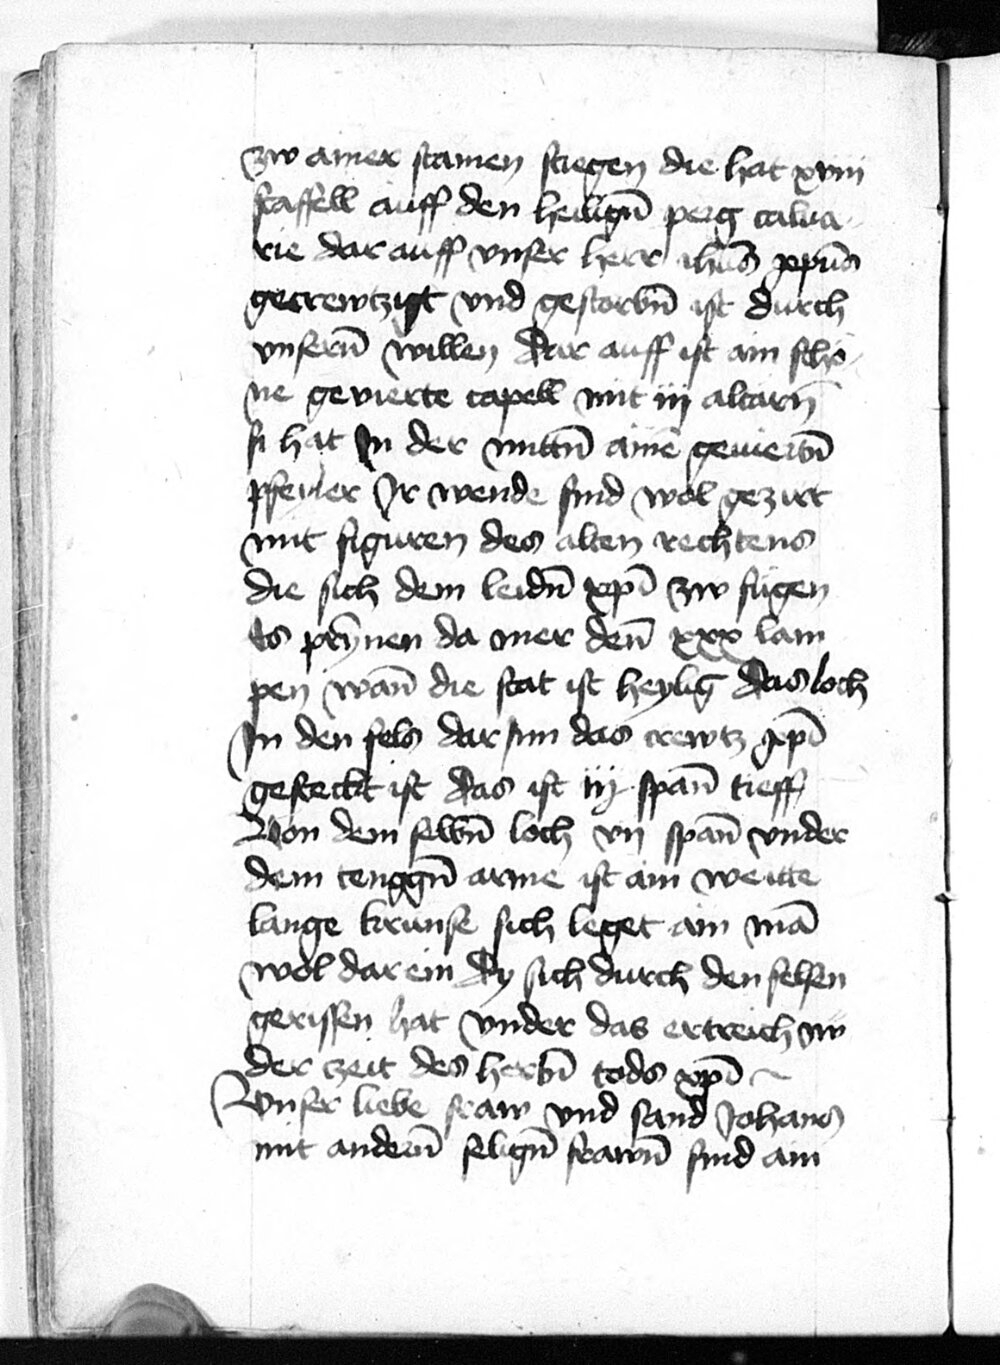 zw ainer stainen stiegen die hat xviii
staffell auff den heiligñ perg calua
rie dar auff vnser herr ihūs xp̄us
gecrewtzigt vnd gestorbñ ist durch
vnserñ willen Dar auff ist ain schö
ne gevierte capell mit iij altarñ
si hat In der mittñ aine geuiertñ
pfeyler Ir wende sind wol gezirt
mit figuren des alten rechtens
die sich dem leidñ xp̄i zw fügen
Es prynnen da mer deñ xxx lam
pen wañ die stat ist heylig Das loch
In den fels dar Inn das crewtz xp̄i
gesteckt ist Das ist iij spañ tieff
Von dem selbñ loch vij spañ vnder
dem tenggñ arme ist ain weitte
lange krunse sich leget ain mā
wol dar ein Dy sich durch den felsen
gerissen hat vnder das ertreich in
der zeit des herbñ tods xp̄i
Vnser liebe fraw vnd sand Johans
mit anderñ seligñ frawñ sind ain